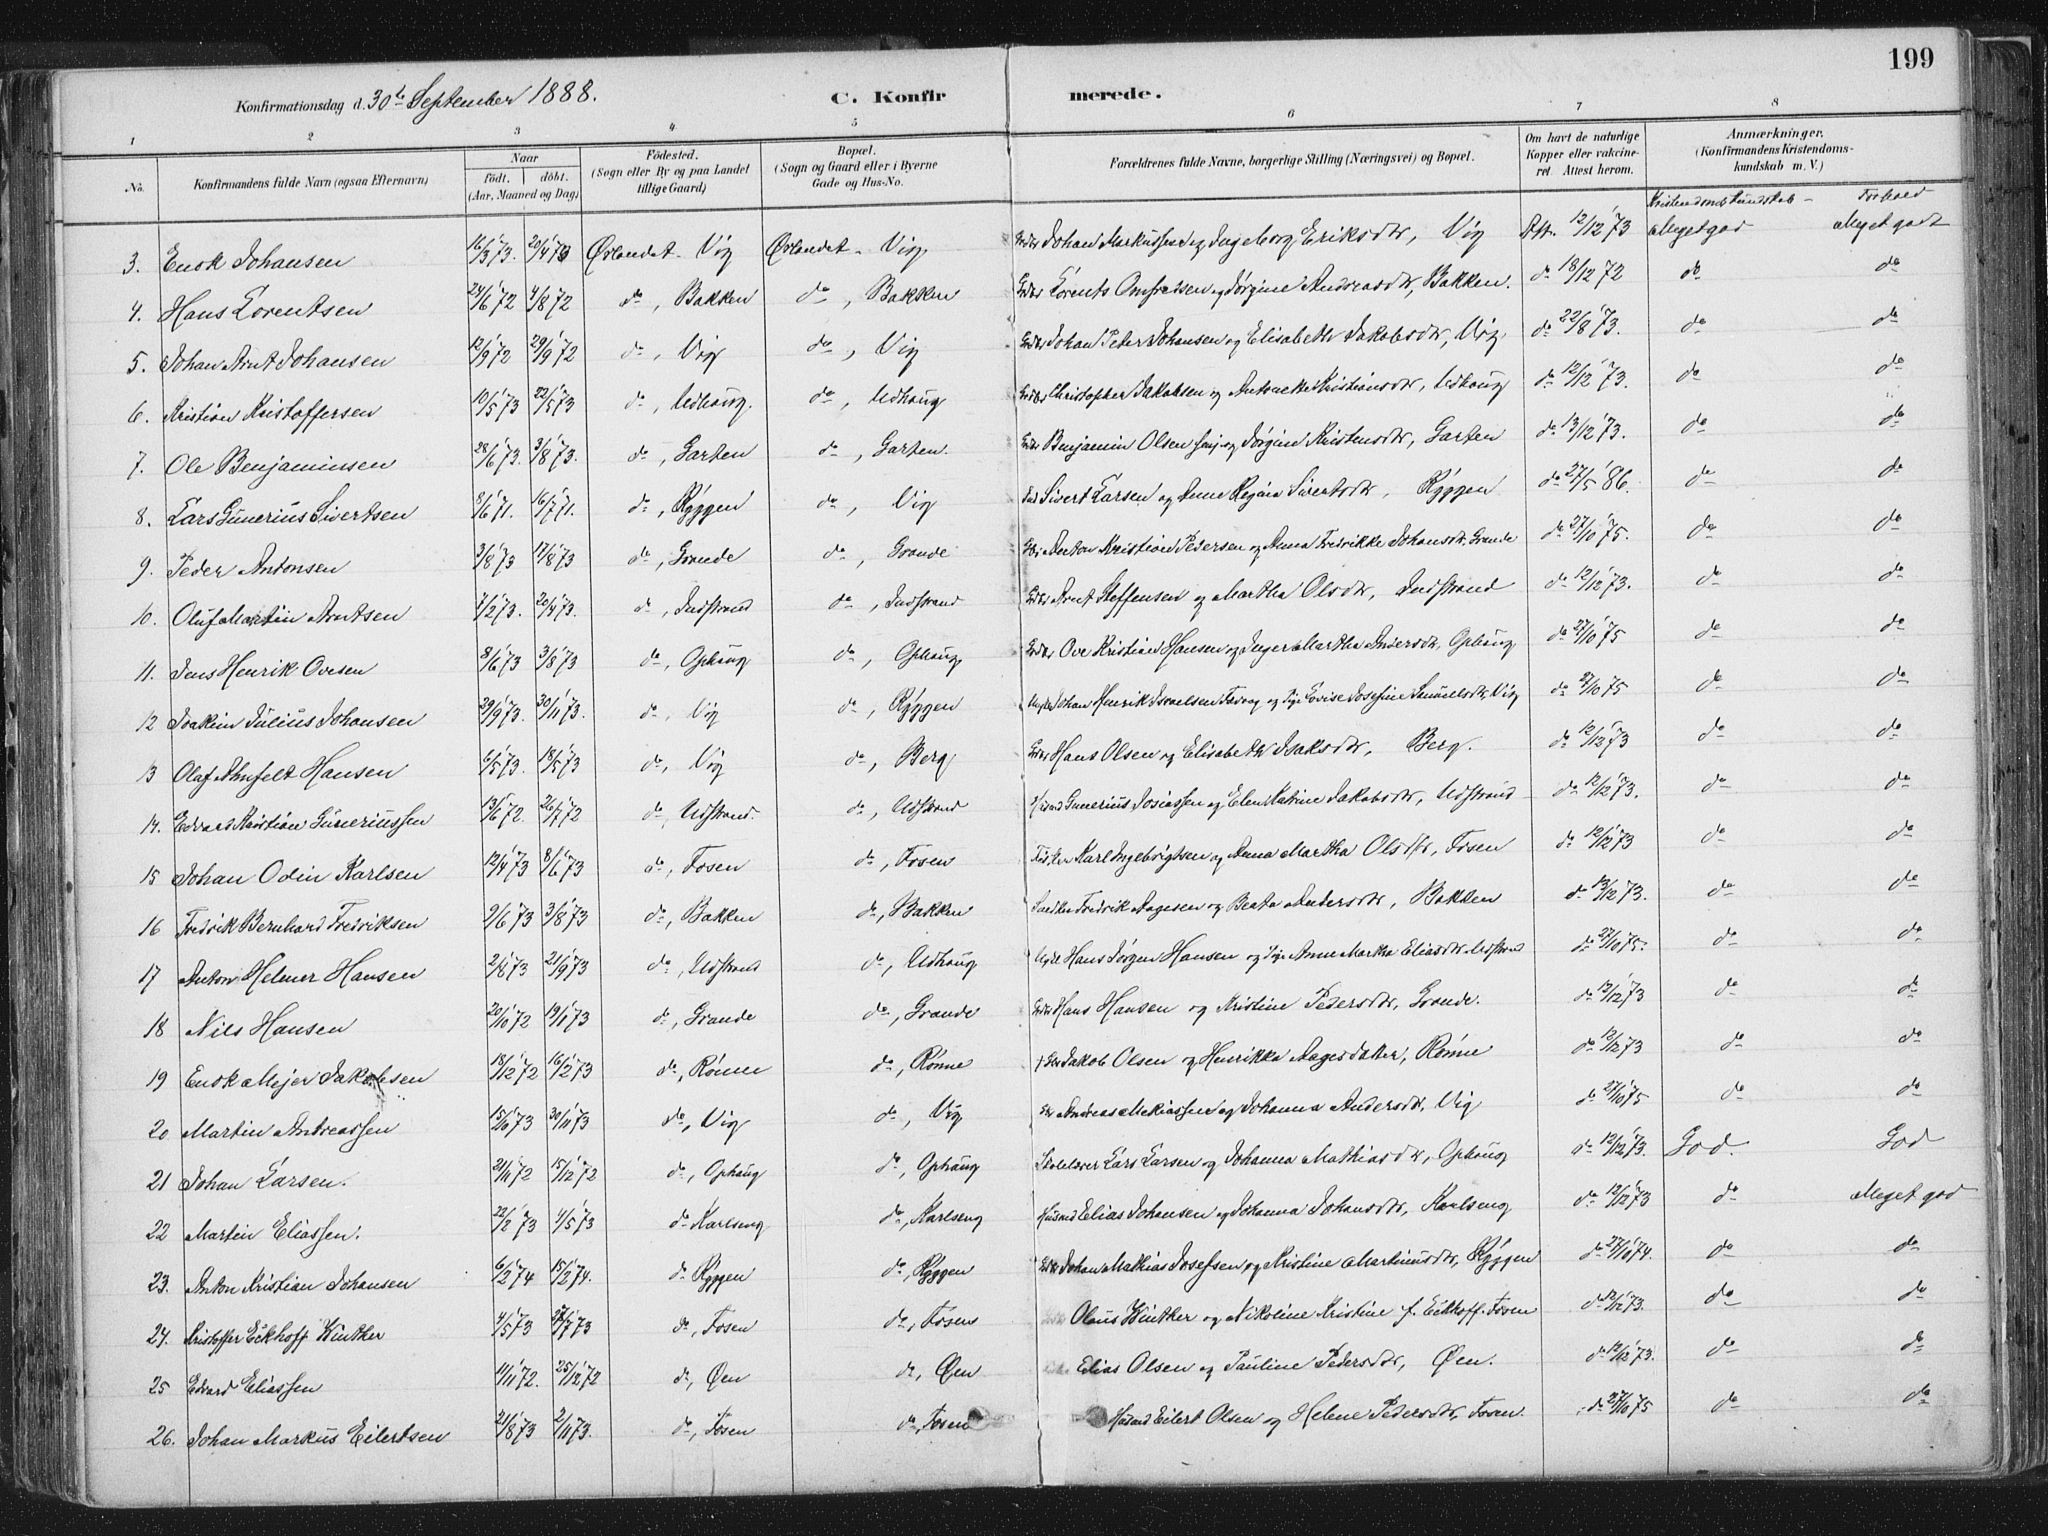 199
Konfirmationsdag d. 30te September 1888. C. Konfirmerede.
1 2 3 4 5 6 7 8
No. Konfirmandens fulde Navn (ogsaa Efternavn) Naar Födt. döbt. (Aar, Maaned og Dag) Födested. (Sogn eller By og paa Landet tillige Gaard) Bopæl. (Sogn og Gaard eller i Byerne Gade og Hus-No. Forældrenes fulde Navne, borgerlige Stilling (Næringsvei) og Bopæl. Om havt de naturlige Kopper eller vakcineret. Attest herom. Anmærkninger. (Konfirmandens Kristendomskundskab m. V.)
Kristendomskundskab - Forhold
3. Enok Johansen 16/3 73. 20/4 73 Ørlandet - Vig Ørlandet - Vig Johan Markussen og Ingeborg Eriksdtr, Vig Att. 12/12 73 Meget god Meget godt
4. Hans Lorentsen 24/6 72 4/8 72 do, Bakken do, Bakken Lorents Omfredsen og Jørgine Andreasdtr, Bakken. do 18/12 72 do do
5. Johan Arnt Johansen 12/9 72 29/9 72 do, Vig do, Vig Johan Peter Johansen og Elisabeth Jakobsdtr, Vig. do 22/8 73. do do
6. Kristian Kristoffersen 10/5 73 22/5 73 do, Udhaug. do, Udhaug Christopher Jakobsen og Antonette Kristiansdtr, Udhaug do 12/12 73. do do
7. Ole Benjaminsen 28/6 73. 3/8 73. do, Garten do, Garten. Benjamin Olsen og Jørgine Kristensdtr, Garten do 13/12 73. do do
8. Lars Gunerius Sivertsen 8/6 71. 16/7 71. do, Ryggen do, Vig Sivert Larsen og Anne Regina Sivertsdtr, Ryggen do 27/5 86. do do
9. Peder Antonsen 3/8 73 17/8 73 do, Grande do, Grande Anton Kristian Pedersen og Anna Fredrikke Johansdtr, Grande do 27/10 75. do do
10. Oluf Martin Arntsen 7/2 73. 20/4 73. do, Indstrand do, Indstrand Arnt Steffensen og Martha Olsdtr, Indstrand do 12/12 73. do do
11. Jens Henrik Ovesen 8/6 73 3/8 73 do, Ophaug do, Ophaug Ove Kristian Hansen og Inger Martha Andersdtr, Ophaug do 27/10 75 do do
12 Joakim Julius Johansen 29/9 73. 30/11 73. do, Vig do, Ryggen Johan Henrik Israelsen og Lovise Josefine Samuelsdtr, Vig do 27/10 75 do do
13 Olaf Anfelt Hansen 6/5 73. 18/5 73 do, Vig do, Berg Hans Olsen og Elisabeth Isaksdtr, Berg. do 12/12 73 do do
14. Edvard Kristian Guneriussen 13/6 72. 26/7 72 do, Udstrand. do, Udstrand Gunerius Josiassen og Elen Katrine Jakobsdtr, Udstrand do 12/12 73. do do
15 Johan Odin Karlsen 12/4 73 8/6 73 do, Fosen do, Fosen Fisker Karl Ingebrigtsen og Anna Martha Olsdtr, Fosen do 12/12 73 do do
16 Fredrik Bernhard Fredriksen 9/6 73 3/8 73 do, Bakken do, Bakken Fredrik Aagesen og Beata Andersdtr, Bakken do 13/12 73. do do
17 Anton Helmer Hansen 2/8 73 21/9 73 do, Udstrand do, Udhaug Hans Jørgen Hansen og Anne Martha Eliasdtr, Udstrand do 27/10 75. do do
18 Nils Hansen 20/10 72 19/1 73 do, Grande do, Grande Hans Hansen og Kristine Pedersdtr, Grande. do 13/12 73 do do
19 Enok Mejer Jakobsen 18/12 72 16/2 73 do, Rönne do, Rönne Jakob Olsen og Henrikka Aagesdatter, Rönne do 12/12 73 do do
20 Martin Andreassen 15/10 73 30/11 73 do, Vig do, Vig Andreas Mekiassen og Johanna Andersdtr, Vig do 27/10 75 do do
21 Johan Larsen. 21/11 72 15/12 72 do, Ophaug do, Ophaug Skolelærer Lars Larsen og Johanna Mathiasdtr, Ophaug do 12/12 73. God. God
22 Martin Eliassen. 22/2 73 4/5 73 do Karlseng do, Karlseng Husmd Elias Johansen og Johanna Johansdtr, Karlseng do 12/12 73 do Meget god
23. Anton Kristian Johansen 6/2 74 15/2 74. do Ryggen do, Ryggen Johan Mathias Josefsen og Kristine Martinusdtr, Ryggen do 27/10 74. do do
24. Kristoffer Eckhoff Winther 4/5 73 27/7 73 do, Fosen do, Fosen Olaus Winther og Nikoline Kristine f. Eckhoff. Fosen do 12/12 73. do do
25 Edvard Eliassen 11/11 72. 25/12 72 do, Øen do, Øen Elias Olsen og Pauline Pedersdtr, Øen. do 12/12 73. do do
26. Johan Markus Eilertsen 21/8 73 2/11 73. do, Fosen do, Fosen Husmd Eilert Olsen og Helene Pedersdtr, Fosen. do 27/10 75 do do